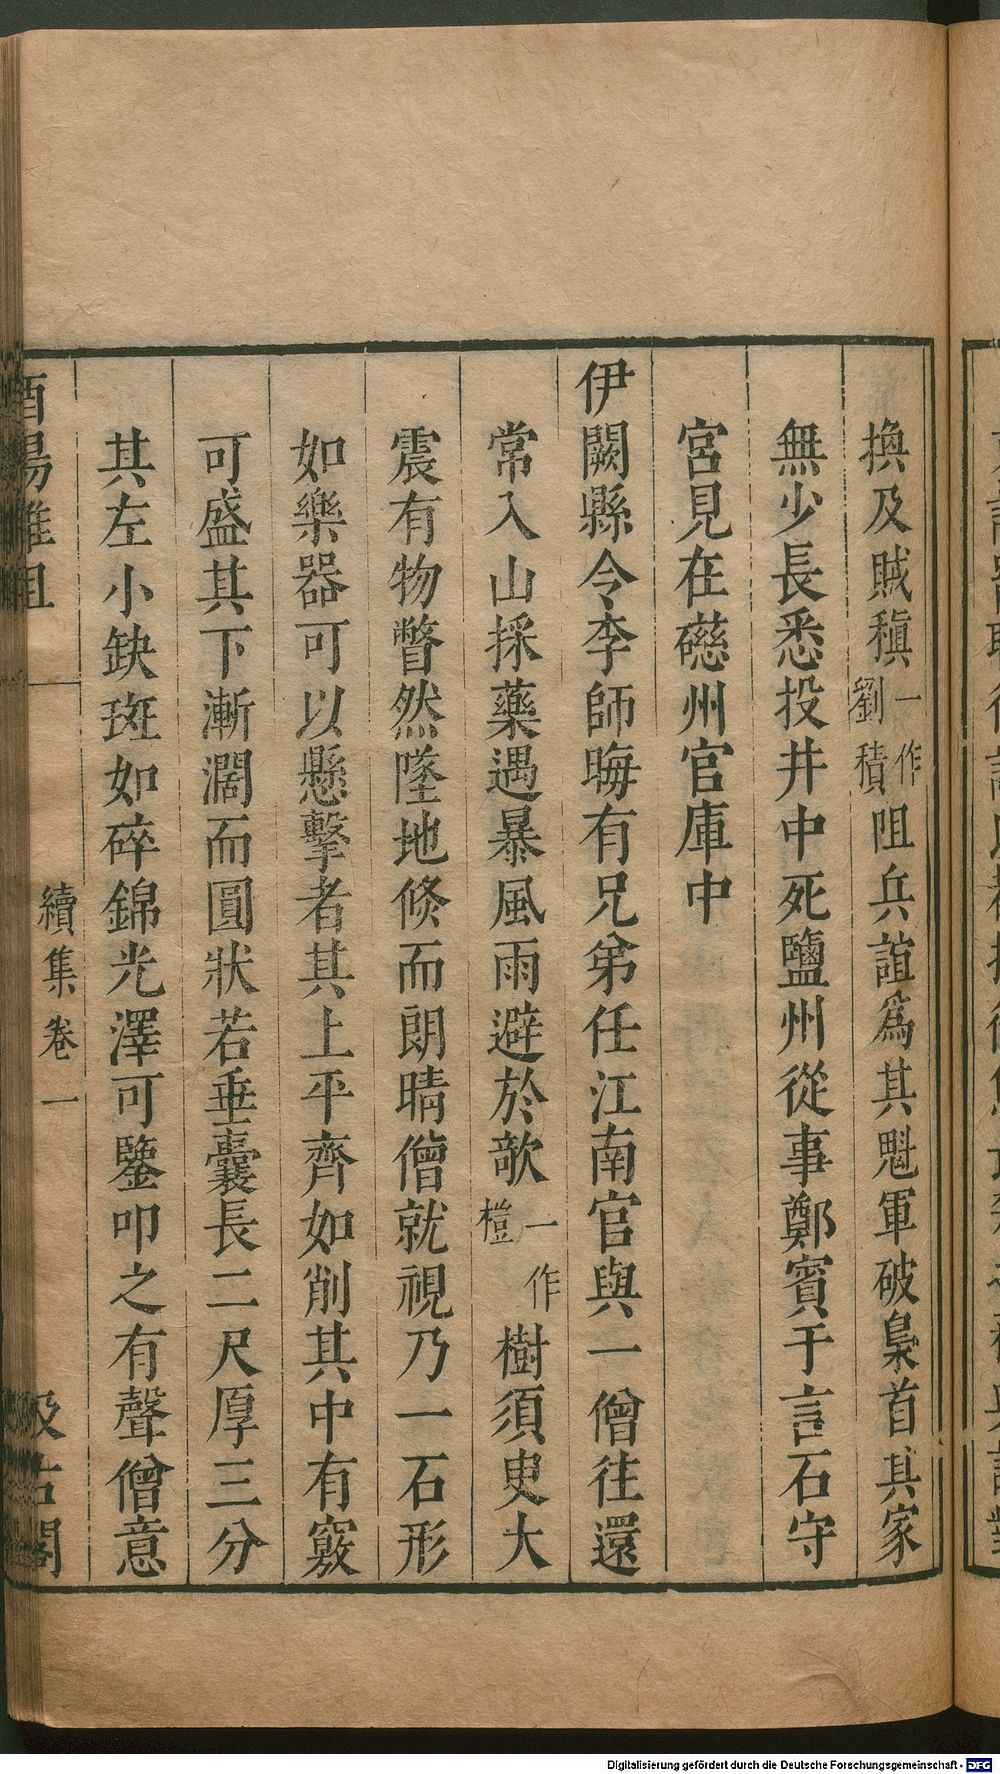 換及賊稹一作劉積阻兵誼爲其魁軍破梟首其家
無少長悉投井中死鹽州從事鄭賓于言石守
宮見在磁州官庫中
伊闕縣令李師晦有兄弟任江南官與一僧往還
常入山採藥遇暴風雨避於欹一作榿樹須臾大
震有物瞥然墜地倏而朗晴僧就視乃一石形
如樂器可以懸擊者其上平齊如削其中有竅
可盛其下漸濶而圓狀若垂囊長二尺厚三分
其左小缺斑如碎錦光澤可鑒叩之有聲僧意
酉陽雜俎 續集卷一 汲古閣
Digitalisierung gefördert durch die Deutsche Forschungsgemeinschaft - DFG